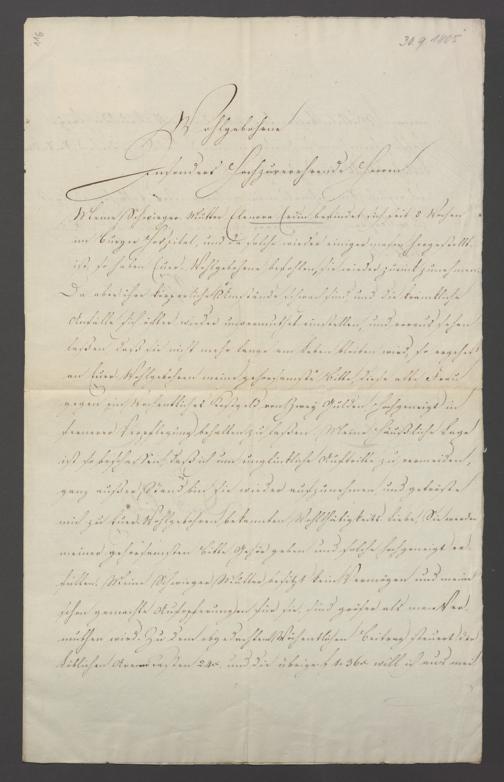 116
30. 9. 1805
Wohlgebohrne
Insonders Hochzuverehrende Herren
Meine Schwieger Mutter Elenora befindet sich seit 8 Wochen
im Burger Hospital, und da solche wieder einigermasen hergestellt
ist, so haben Euer Wohlgebohrne befohlen, sie wieder zurük zunehmen.
Da aber ihre körperliche Umstände schwach sind und die krankliche
Anfälle sich öfters wieder unvermuthet einstellen, und voraus sehen
laßen daß sie nicht mehr lange am Leben bleiben wird, so ergehet
an Euer Wohlgebohrn meine gehorsamste Bitte, diese alte Frau
gegen ein Wochentliches Kostgeld von Zwey Gulden hochgeneigt in
fernerer Verpflegung behalten zu laßen. Meine häußliche Lage
ist so beschaffen, daß ich um unglückliche Auftritte zu vermeiden,
ganz außer Stand bin sie wieder aufzunehmen und getröste
mich zu Euer Wohlgebohrn bekannten Wohlthätigkeits liebe, Sie werden
meiner gehorsamsten Bitte Gehör geben und solche hochgeneigt er
füllen. Meine Schwieger Mutter besitzt kein Vermögen und meine
schon gemachte Aufopferungen für sie, sind größer als man ver
muthen wird. Zu dem abgedachten Wöchentlichen Beitrag steuert der
löblichen Armen Kasten 24x. und die übrige f 1. 36x will ich aus mein